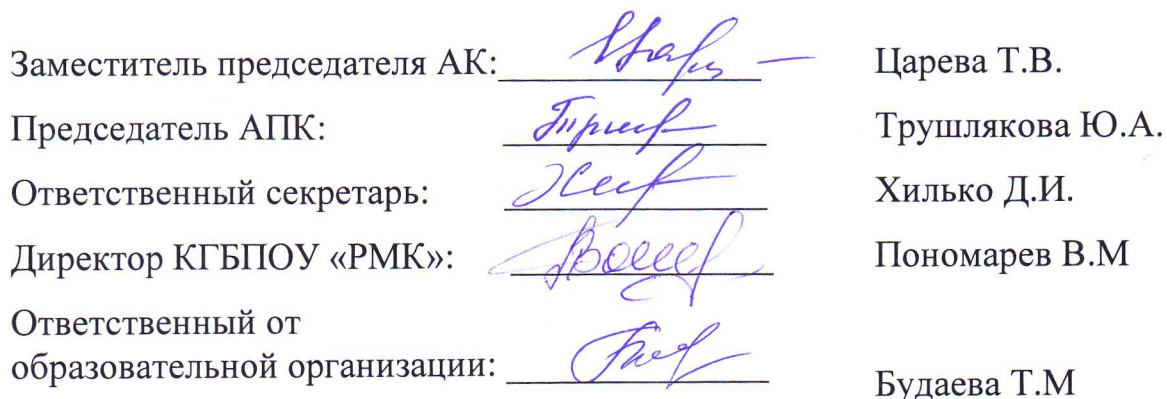 Заместитель председателя АК: Царева Т.В.
Председатель АПК: Трушлякова Ю.А.
Ответственный секретарь: Хилько Д.И.
Директор КГБПОУ «РМК»: Пономарев В.М
Ответственный от
образовательной организации: Будаева Т.М